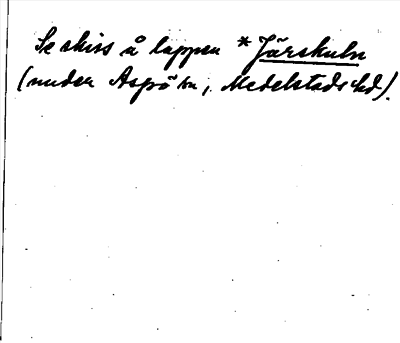 Se skiss å lappen *Järskuln
(under Aspö sn, Medelstads hd).